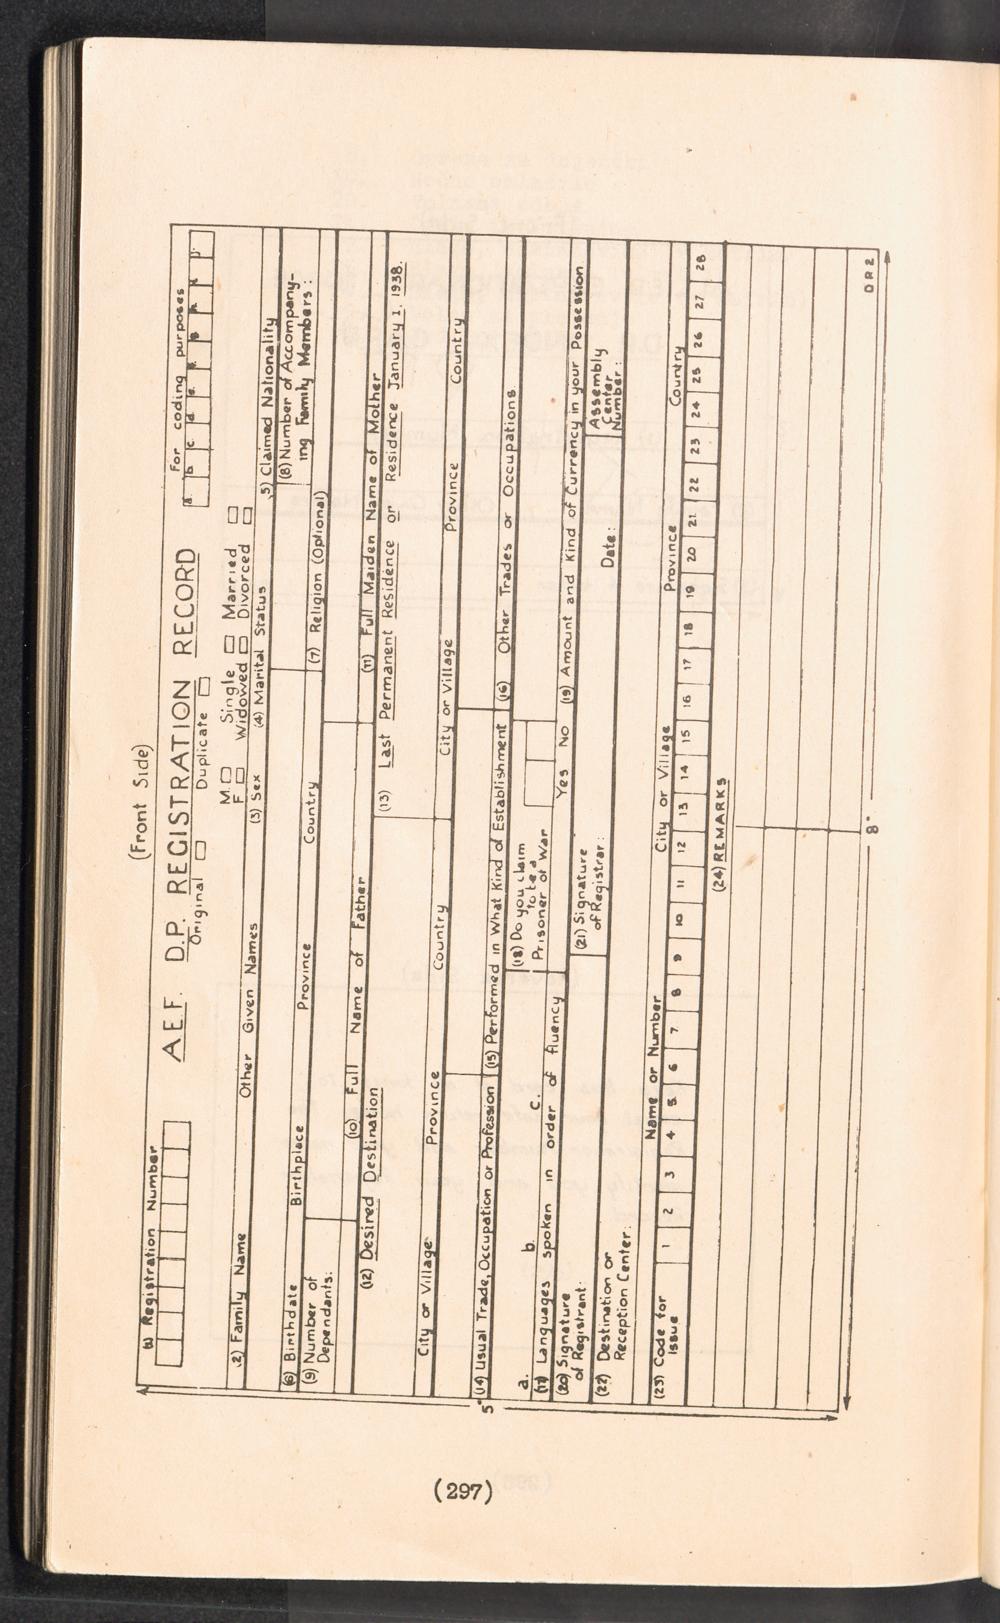 (Front Side)
(1) Registration Number
A.E.F. D.P. REGISTRATION RECORD
For coding purposes
Original Duplicate
a b c d e f g h i j
M. Single Married
F Widowed Divorced
(2) Family Name Other Given Names (3) Sex (4) Marital Status 5) Claimed Nationality
(6) Birthdate Birthplace Province Country (7) Religion (Optional) (8) Number of Accompany-
ing Family Members:
(9) Number of
Dependants:
(10) Full Name of Father (11) Full Maiden Name of Mother
(12) Desired Destination (13) Last Permanent Residence or Residence January 1. 1938.
City or Village Province Country City or Village Province Country
(14) Usual Trade, Occupation or Profession (15) Performed in What Kind of Establishment (16) Other Trades or Occupations
a. b. c.
(17) Languages spoken in order of fluency
(18) Do you claim
to be a
Prisoner of War
Yes No
(19) Amount and Kind of Currency in your Possession
(20) Signature
of Registrant:
(21) Signature
of Registrar:
Date:
Assembly
Center
Number:
(22) Destination or
Reception Center:
Name or Number City or Village Province Country
(23) Code for
Issue
1 2 3 4 5 6 7 8 9 10 11 12 13 14 15 16 17 18 19 20 21 22 23 24 25 26 27 28
(24) REMARKS
DR2
5"
8"
(297)